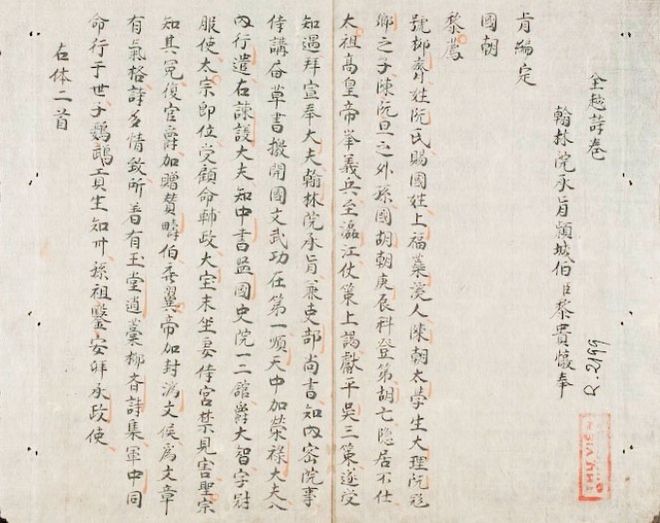 全越詩卷
翰林院承旨頴城伯臣黎貴惇奉
旨編定
國朝
黎廌
號抑齋姓阮氏賜國姓上福蘂溪人陳朝太學生大理阮飛
卿之子陳阮旦之外孫國胡朝庚辰科登第胡亡隐居不仕
太祖高皇帝举義兵至瀘江仗策上謁獻平吳三策遂受
知遇拜宣奉大夫翰林院承旨兼吏部尚書知內密院事
侍講居草書撥開國文武功在第一順天中加荣禄大夫入
內行遣右諫議大夫知中書監國史院一二舘爵大智字尉
服使太宗即位受顧命輔政大宝末坐妾侍宮禁見害聖宗
知其冤復官爵加贈赞疇伯襄翼帝加封濟文侯為文章
有氣格詩多情致所著有玉堂遺藁抑斎詩集軍中同
命行于世子鸚鵡貢生知州孫祖鑒安邦承政使
古体二首
R.2199